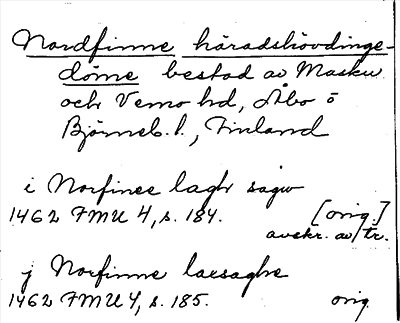 Nordfinne häradshövdinge-
döme bestod av Masku
och Vemo hd, Åbo o
Björneb. l., Finland
i Norfinee laghsagw
1462 FMU 4, s. 184. [orig.]
avskr. av tr.
j Norfinne laxsaghe
1462 FMU 4, s. 185. orig.